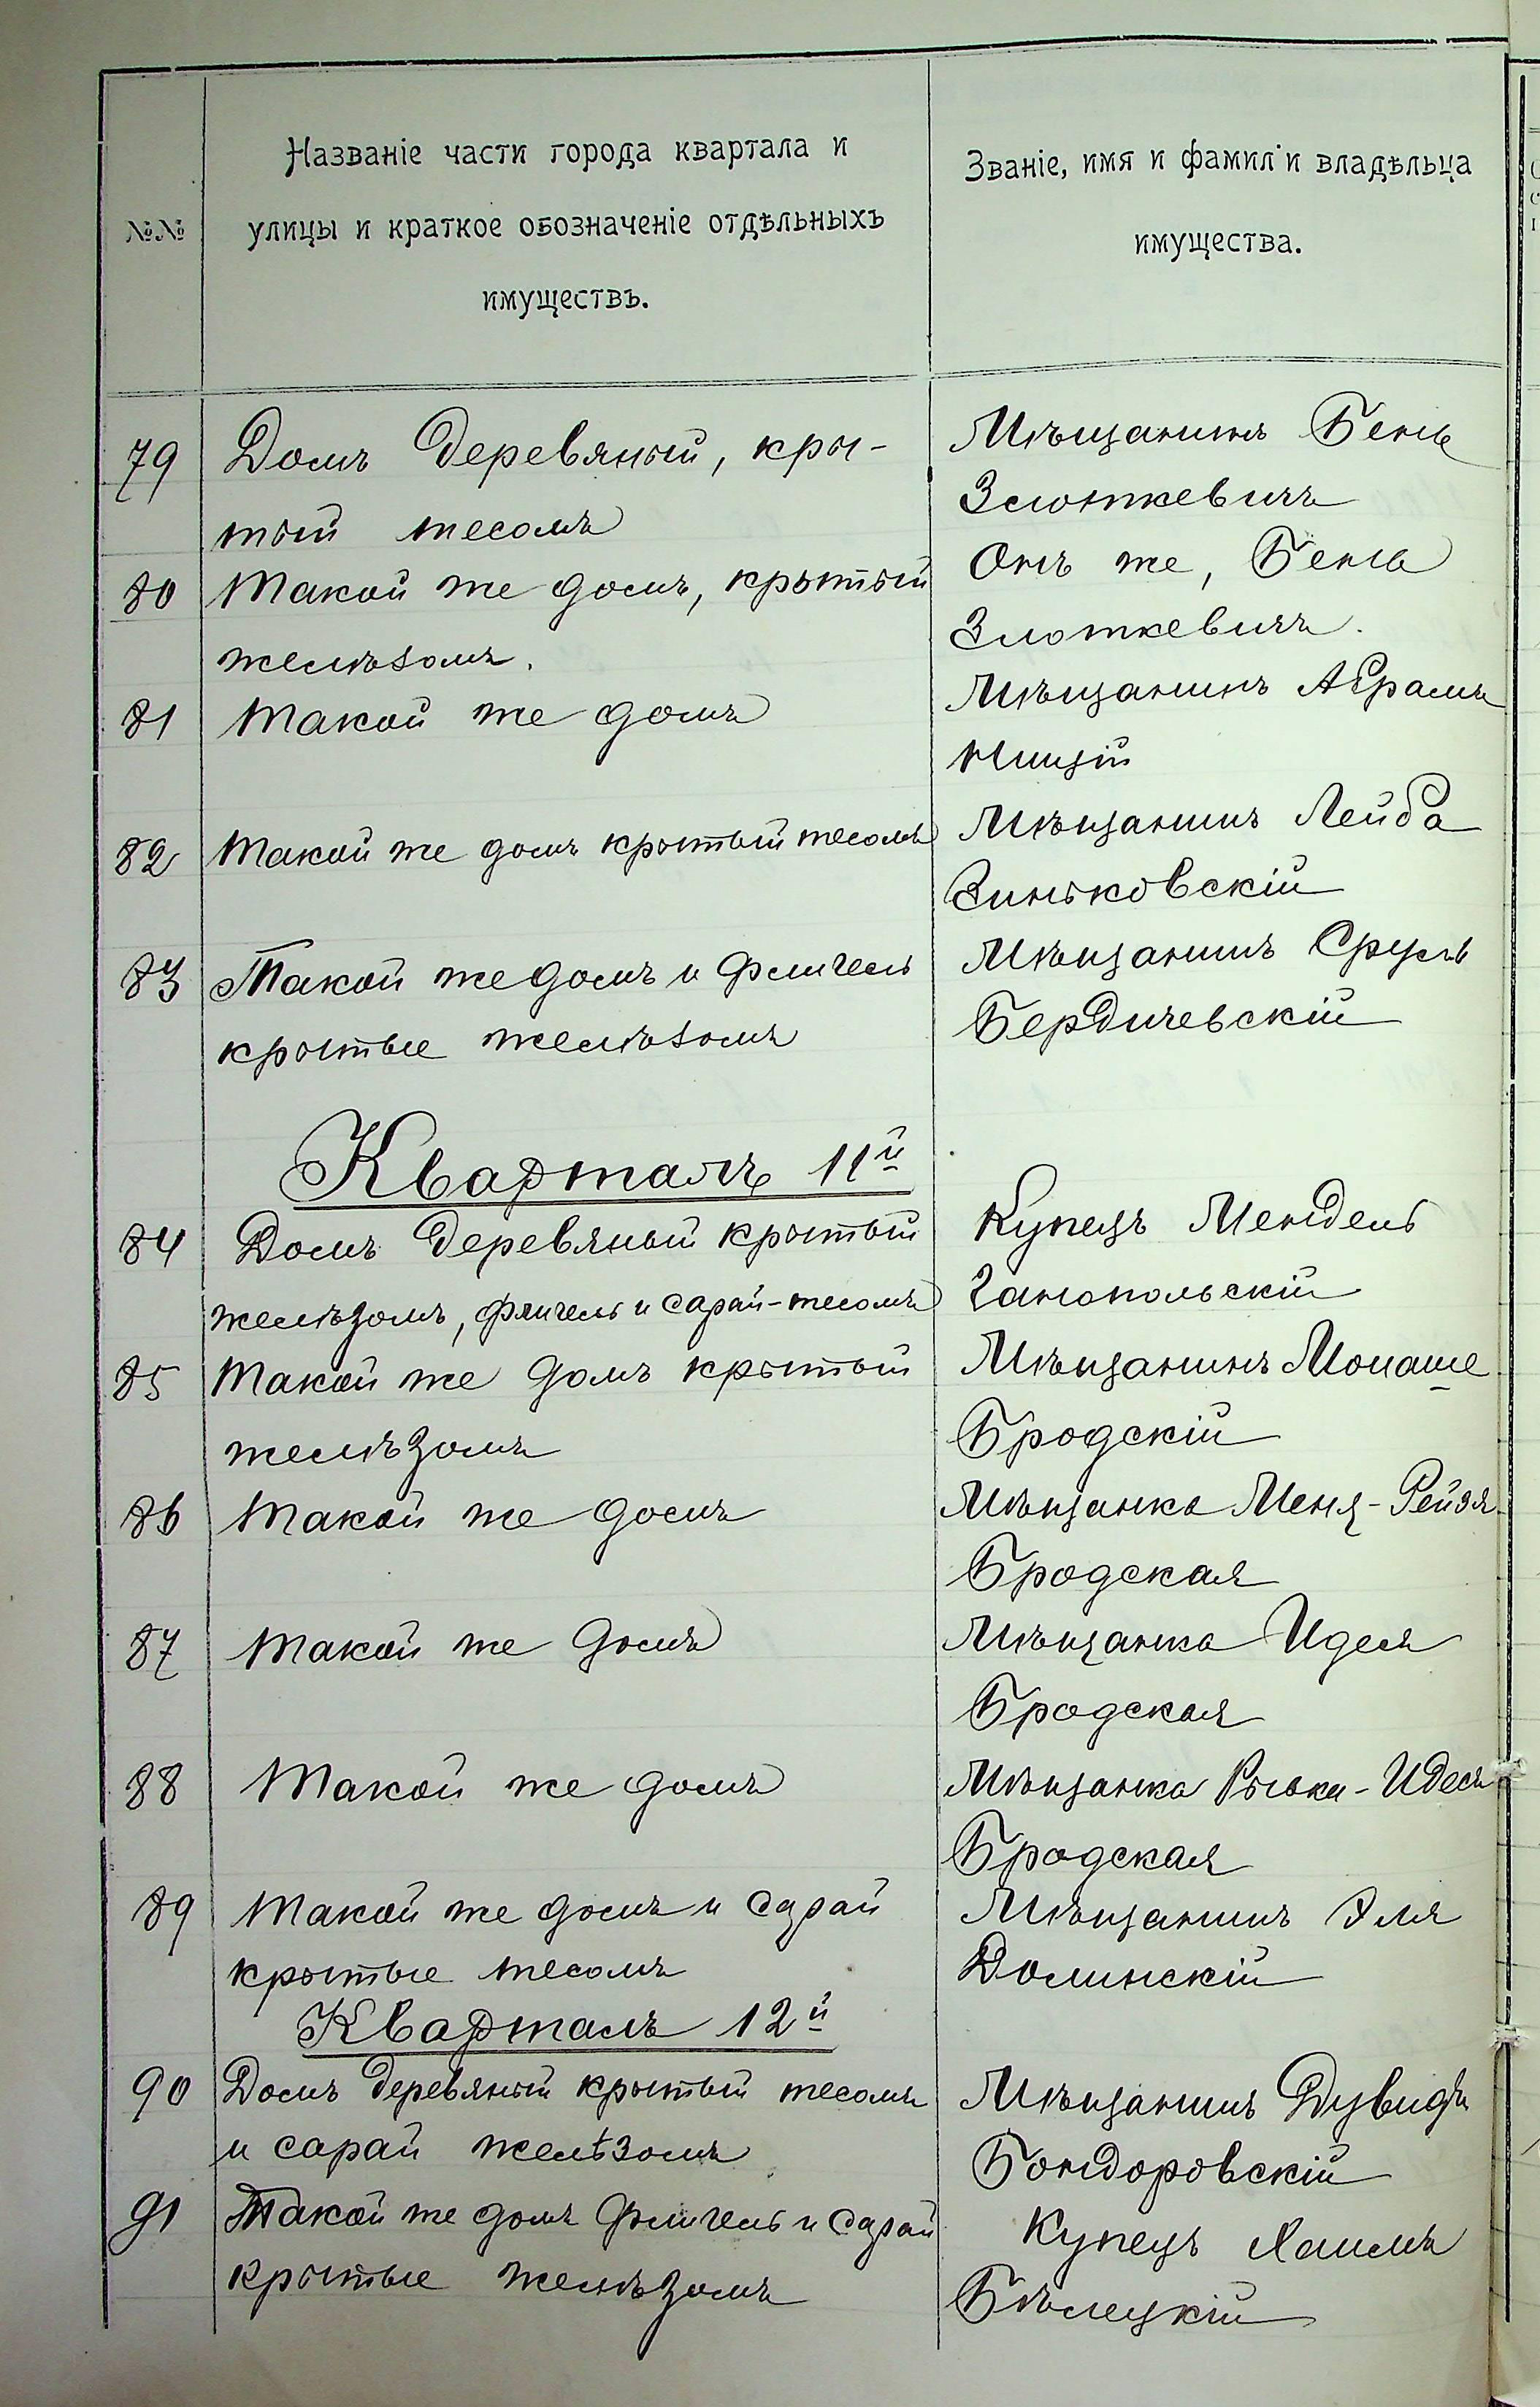 №№
Названіе части города квартала и
улицы и краткое обозначеніе отдѣльныхъ
имуществъ.
Званіе, имя и фамиліи владѣльца
имущества.
79 Домъ деревяный, кры-
тый тесомъ
Мѣщанинъ Бень
Злоткевичъ
80 Такой же домъ, крытый
желѣзомъ.
Онъ же, Бень
Злоткевичъ.
81 Такой же домъ
Мѣщанинъ Абрамъ
Ницій
82 Такой же домъ крытый тесомъ
Мѣщанинъ Лейба
Зиньковскій
83 Такой же домъ и флигель
крытые желѣзомъ
Мѣщанинъ Сруль
Бердичевскій
Кварталъ 11й
84 Домъ деревяный крытый
желѣзомъ, флигель и сарай-тесомъ
Купецъ Мендель
Ганопольскій
85 Такой же домъ крытый
желѣзомъ
Мѣщанинъ Монаше
Бродскій
86 Такой же домъ
Мѣщанка Меня-Рейзя
Бродская
87 Такой же домъ
Мѣщанка Идеся
Бродская
88 Такой же домъ
Мѣщанка Идеся
Бродская
89 Такой же домъ и сарай
крытые тесомъ
Мѣщанинъ Эля
Долинскій
Кварталъ 12й
90 Домъ деревяный крытый тесомъ
и сарай желѣзомъ
Мѣщанинъ Дувидъ
Бондоровскій
91 Такой же домъ флигель и сарай
крытые желѣзомъ
Купецъ Хаимъ
Бѣлецкій